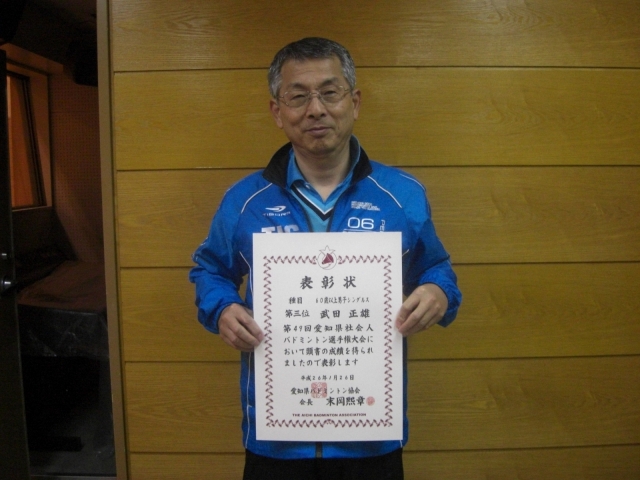 06
表彰状
種目 60歳以上男子シングルス
第三位 武田 正雄
第49回愛知県社会人
バドミントン選手権大会に
おいて頭書の成績を得られ
ましたので表彰します
愛知県バドミントン協会
会長 末岡熈章
THE AICHI BADMINTON ASSOCIATION